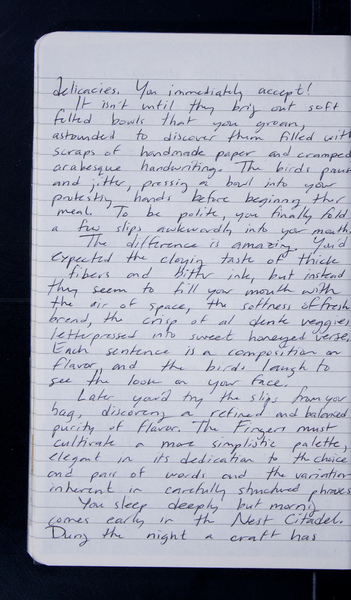 delicacies. You immediately accept!
It isn't until they bring out soft
felted bowls that you groan,
astounded to discover them filled with
scraps of handmade paper and cramped
arabesque handwriting. The birds
and jitter, pressing a bowl into your
protesting hands before beginning their
meal. To be polite, you finally fold
a few slips awkwardly into your mouth.
The difference is amazing. You'd
expected the cloying taste of thick
fibers and bitter ink, but instead
they seem to fill your mouth with
the air of space, the softness of fresh
bread, the crisp of al dente veggies,
letterpressed into sweet honeyed verse.
Each sentence is a composition on
flavor, and the birds laugh to
see the look on your face.
Later you'd try the slips from your
bag, discovering a refined and balanced
purity of flavor. The Fingers must
cultivate a more simplistic palette,
elegant in its dedication to the choice
and pair of words and the variation
inherent in carefully structured phrases.
You sleep deeply but morning
comes early in the Nest Citadel.
During the night a craft has